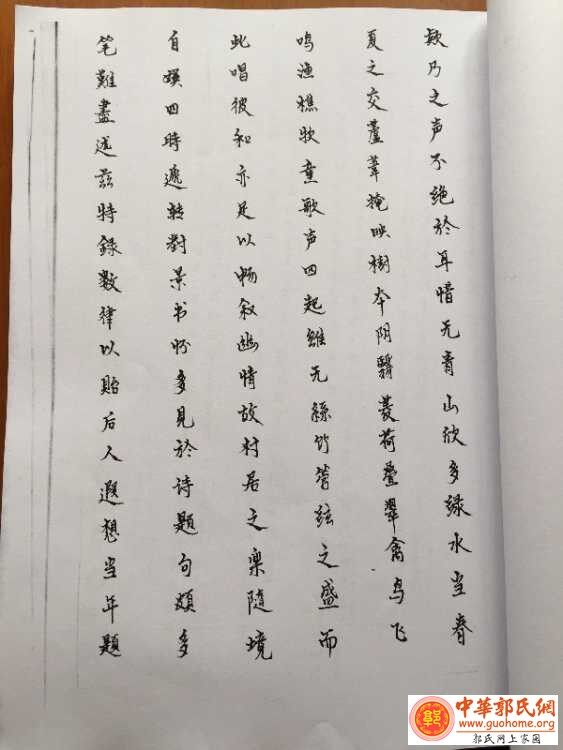 欸乃之声不绝於耳惜无青山欣多绿水当春
夏之交芦苇掩映樹木阴翳菱荷叠翠禽鸟飞
鸣渔樵牧童歌声四起雖无絲竹管弦之盛而
此唱彼和亦足以畅叙幽情故村居之樂隨境
自娱四時遞转對景书怀多見於诗題句頗多
笔難盡述茲特録数律以貽后人遐想当年題
中華郭氏網
www.guohome.org
郭氏网上家园